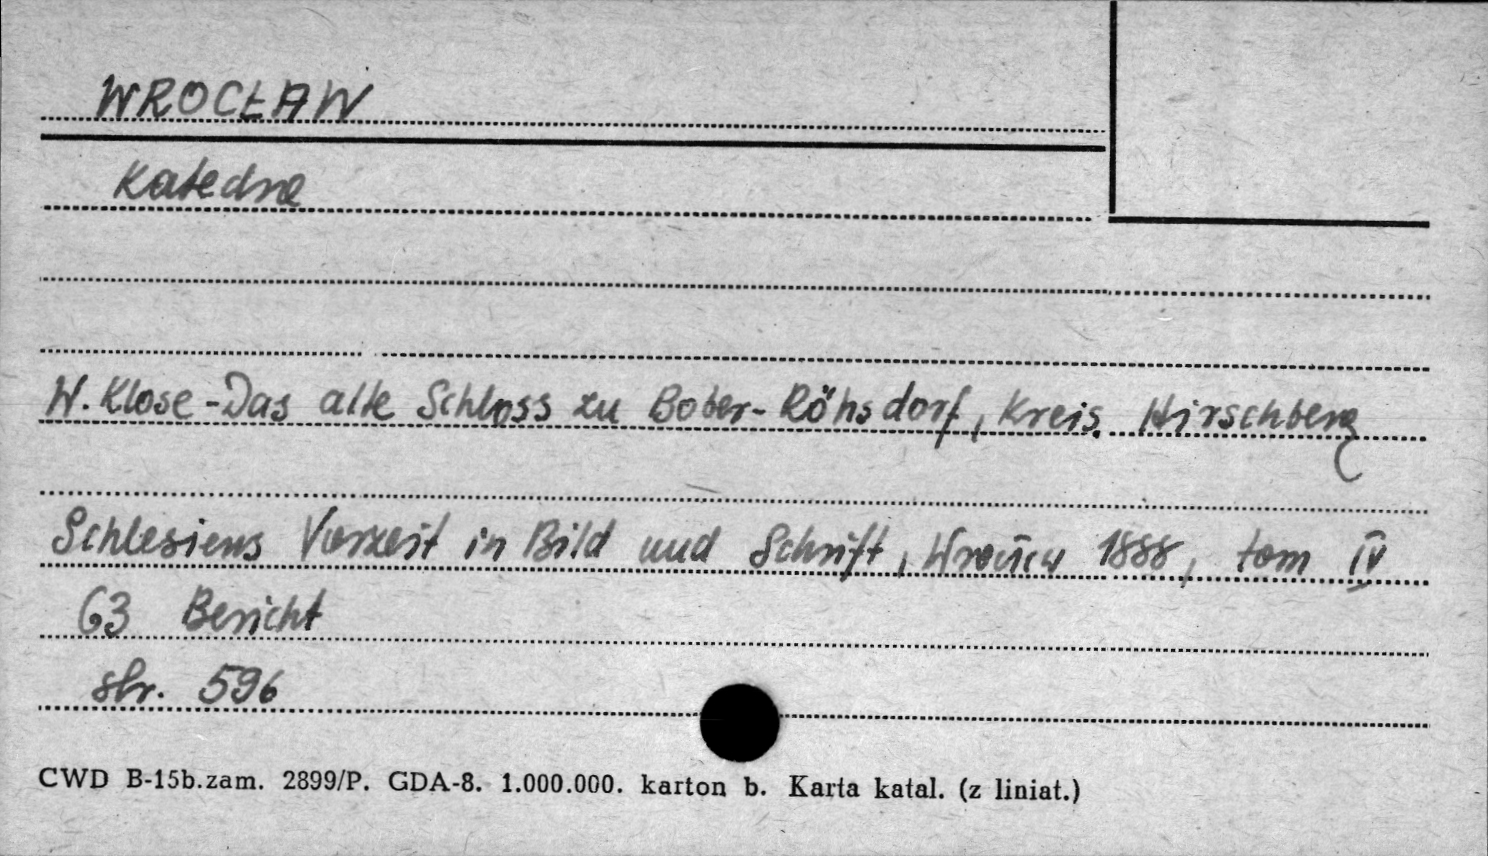 WROCŁAW
Katedra
W. Klose - Das alte Schloss zu Bober-Röhsdorf, Kreis. Hirschberg
Schlesiens Vorzeit in Bild und Schrift, Wrocław 1888, tom IV
63 Bericht
str. 596
CWD B-15b.zam. 2899/P. GDA-8. 1.000.000. karton b. Karta katal. (z liniat.)